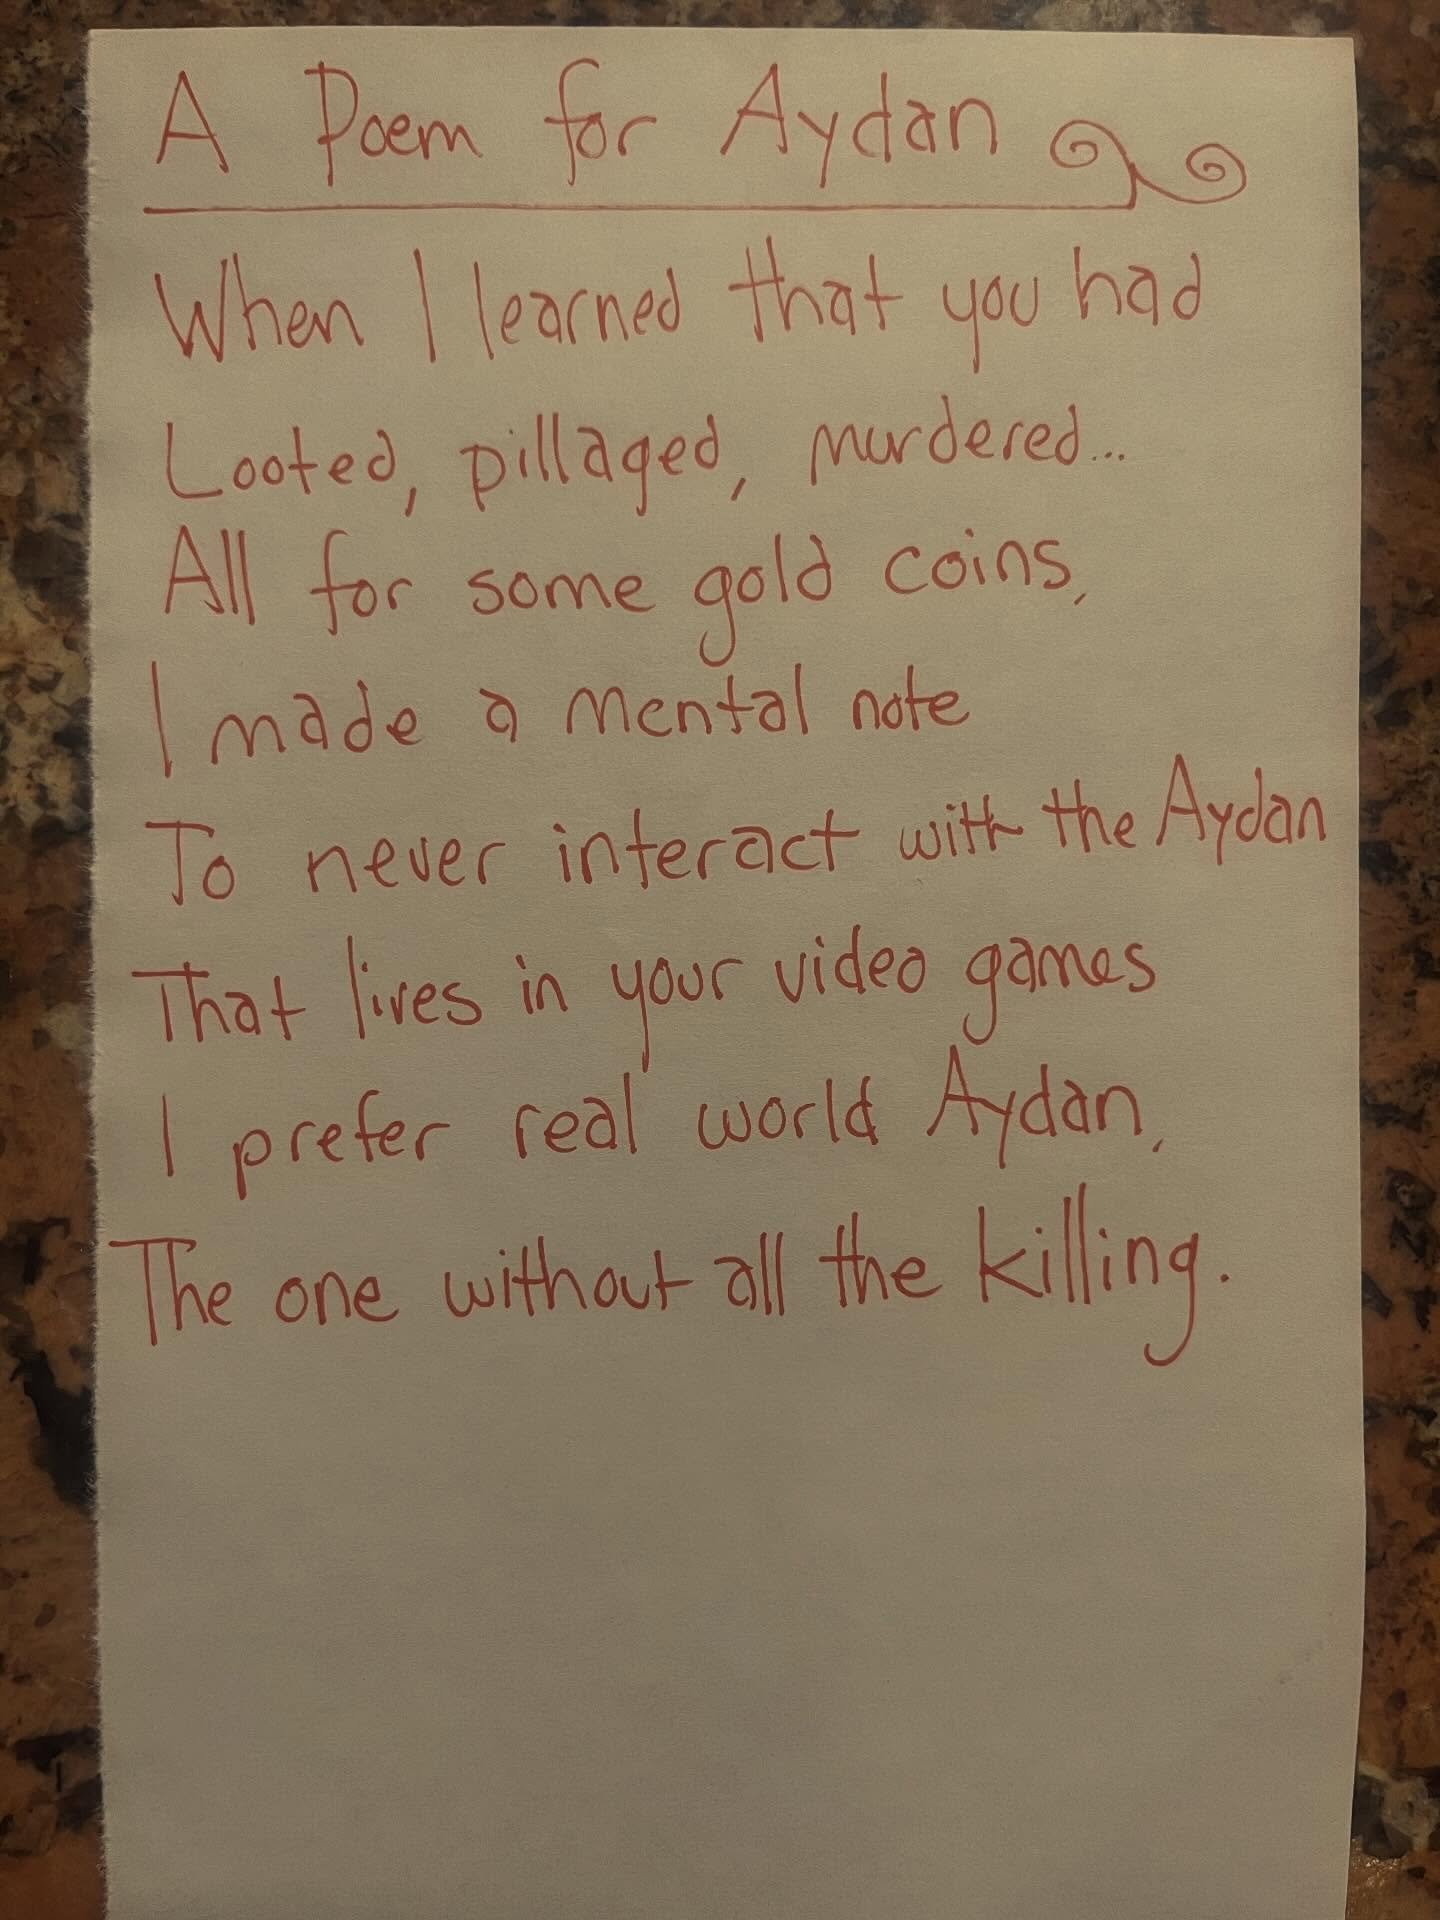 A Poem for Aydan
When I learned that you had
Looted, pillaged, murdered...
All for some gold coins,
I made a mental note
To never interact with the Aydan
That lives in your video games
I prefer real world Aydan,
The one without all the killing.